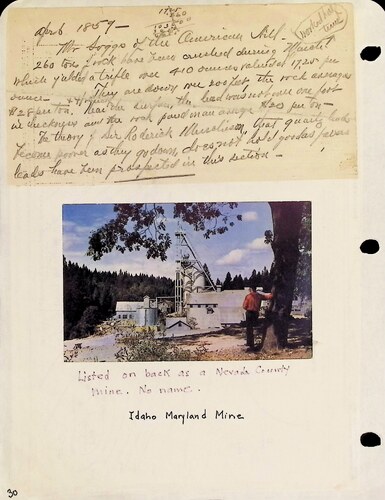 Apr 6 1857 —
Mr Boggs of the American Hill.
260 tons of rock have been crushed during
which yielded a trifle over 410 ounces valued at 17.25 per
ounce — They are down 100 feet the rock averages
$28 per ton. Near the surface the lead was not over one foot
in thickness and the rock paid on an average $20 per ton —
The theory of Sir Roderick Murchison, that quartz leads
become poorer as they go down, does not hold good as far as
leads have been prospected in this section —
Listed on back as a Nevada County
mine. No name.
Idaho Maryland Mine
30